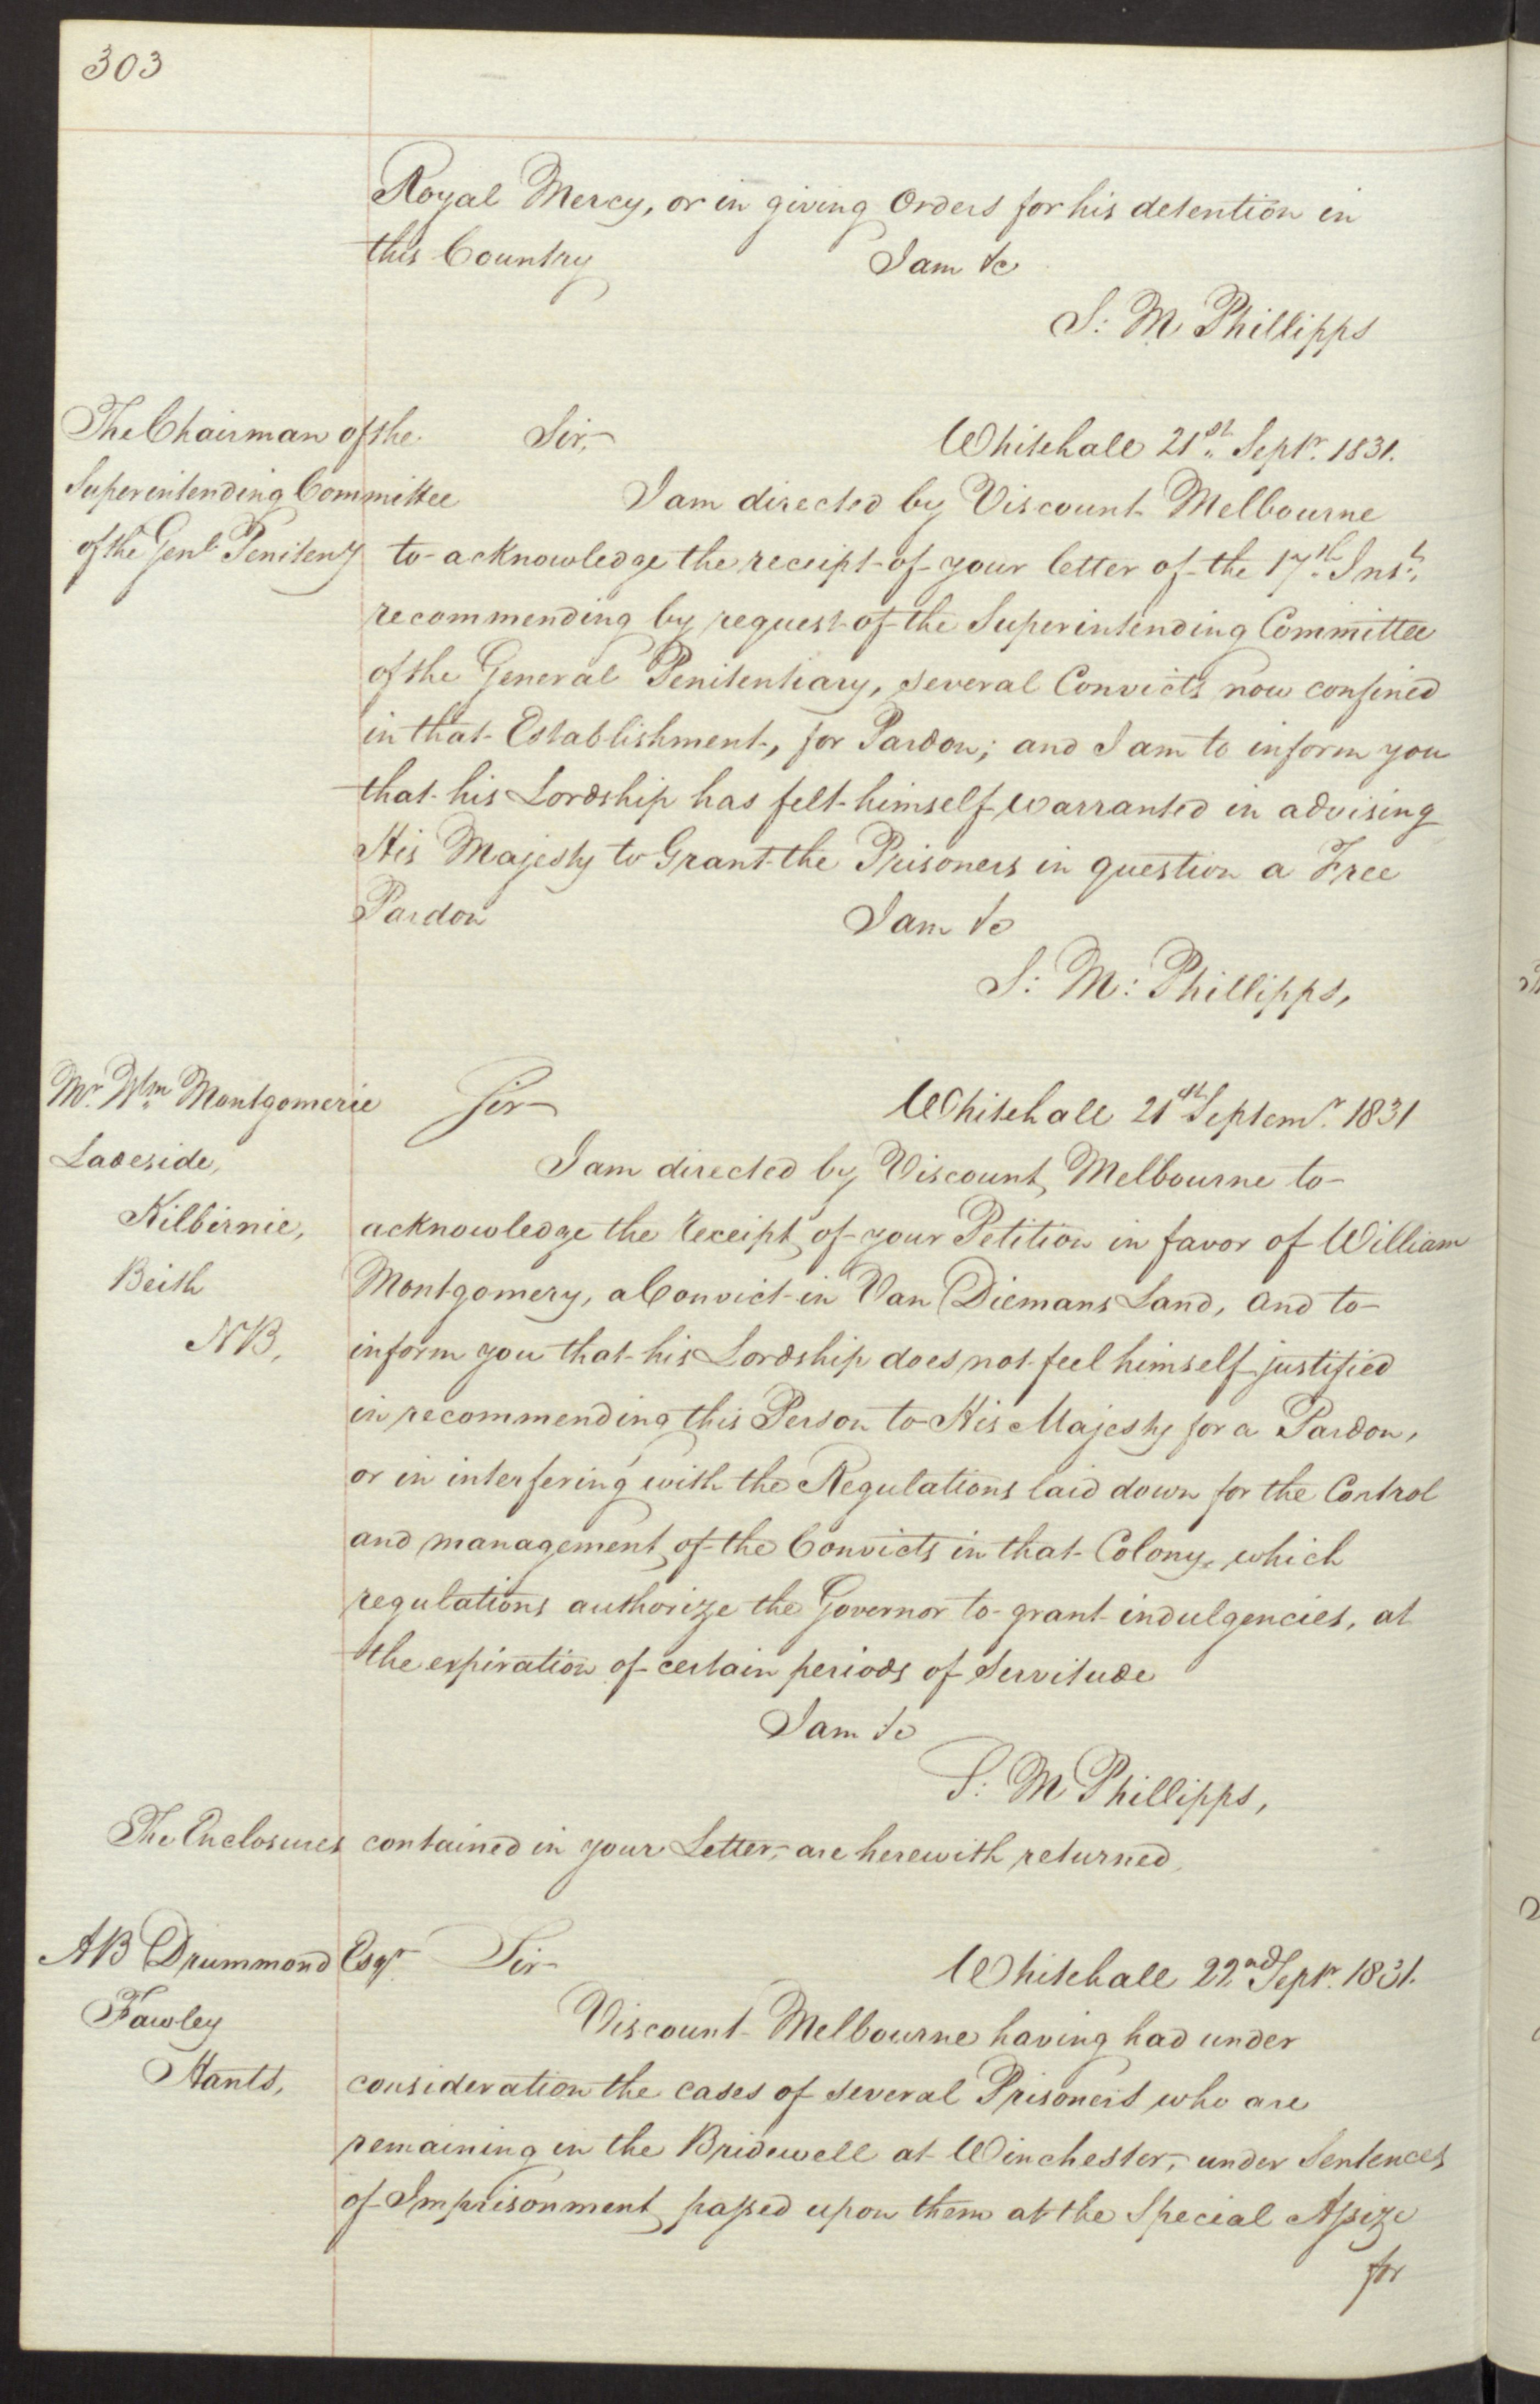 303
Royal Mercy, or in giving Orders for his detention in
this Country I am &c
S: M Phillipps
The Chairman of the Sir, Whitehall 21st. Septr. 1831.
Superintending Committee I am directed by Viscount Melbourne
of the Genl. Penitenry to acknowledge the receipt of your letter of the 17th. Inst.,
recommending by request of the Superintending Committee
of the General Penitentiary, several Convicts now confined
in that Establishment, for Pardon; and I am to inform you
that his Lordship has felt himself warranted in advising
His Majesty to Grant the Prisoners in question a Free
Pardon I am &c
S: M: Phillipps,
Mr. Wm. Montgomerie Sir Whitehall 21st Septemr. 1831
Ladeside, I am directed by Viscount Melbourne to
Kilbirnie, acknowledge the receipt of your Petition in favor of William
Beith Montgomery, a Convict in Van Diemans Land, and to
NB, inform you that his Lordship does not feel himself justified
in recommending this Person to His Majesty for a Pardon,
or in interfering with the Regulations laid down for the Control
and management of the Convicts in that Colony, which
regulations authorize the Governor to grant indulgencies, at
the expiration of certain periods of Servitude
I am &c
S: M Phillipps,
The Enclosures contained in your Letter, are herewith returned,
AB Drummond Esqr. Sir Whitehall 22nd Septr. 1831.
Fawley Viscount Melbourne having had under
Hants, consideration the cases of several Prisoners who are
remaining in the Bridewell at Winchester, under Sentences
of Imprisonment passed upon them at the Special Assize
for